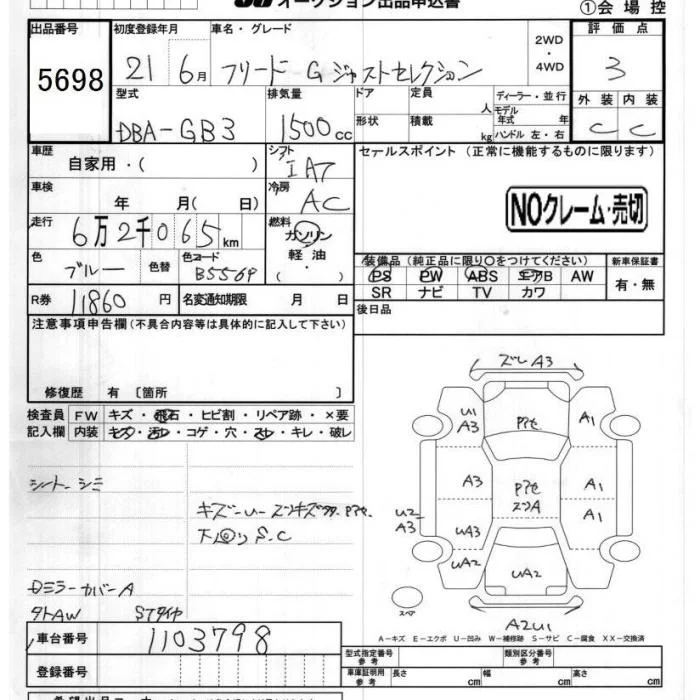 オークション出品申込書
①会場控
出品番号 初度登録年月 車名・グレード 2WD・4WD 評価点
5698 21 6月 フリード G ジャストセレクション 3
型式 排気量 ドア 定員 人 ディーラー・並行 外装 内装
DBA-GB3 1500cc 形状 積載 kg モデル年式 年 ハンドル 左・右 C C
車歴 自家用・( ) シフト IAT セールスポイント (正常に機能するものに限ります)
車検 年 月( 日) 冷房 AC
NOクレーム・売切
走行 6万2千065km 燃料 ガソリン
軽油・( )
色 ブルー 色替 色コード B5569
装備品 (純正品に限り○をつけてください) 新車保証書
PS PW ABS エアB AW 有・無
SR ナビ TV カワ
R券 11860円 名変通知期限 月 日
後日品
注意事項申告欄(不具合内容等は具体的に記入して下さい)
修復歴 有 〔箇所 〕
検査員 FW キズ・飛石・ヒビ割・リペア跡・×要
記入欄 内装 キズ・汚レ・コゲ・穴・スレ・キレ・破レ
ズレA3
U1 A3 Pアセ A1
A3 Pアセ A1
U2 A3 UA3 A1
UA2 UA2
A2U1
スペア
シートシミ
S.C
Dミラーカバー A
タトAW STタイヤ
A-キズ E-エクボ U-凹み W-補修跡 S-サビ C-腐食 XX-交換済
車台番号 1103798
登録番号
型式指定番号 参考 類別区分番号 参考
車庫証明用 参考 長さ cm 幅 cm 高さ cm